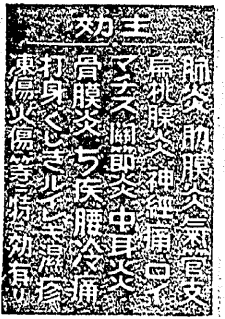 主効
肺炎 肋膜炎 氣管支
扁桃腺炎 神經痛 ロイ
マチス 關節炎 中耳炎
骨膜炎 ぢ疾 腰冷痛
打身 くじき ルイレキ 濕疹
凍傷 火傷等ニ特効有リ